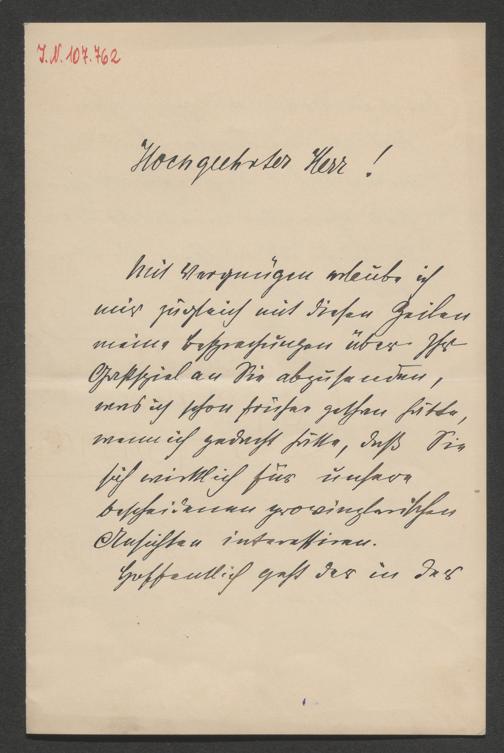 J.N. 107.762
Hochgeehrter Herr!
Mit Vergnügen erlaube ich
mir zugleich mit diesen Zeilen
meine Besprechungen über Ihr
Gastspiel an Sie abzusenden,
was ich schon früher gethan hätte,
wenn ich gedacht hätte, daß Sie
sich wirklich für unsere
bescheidenen provinzlerischen
Ansichten interessiren.
Hoffentlich geht der in der